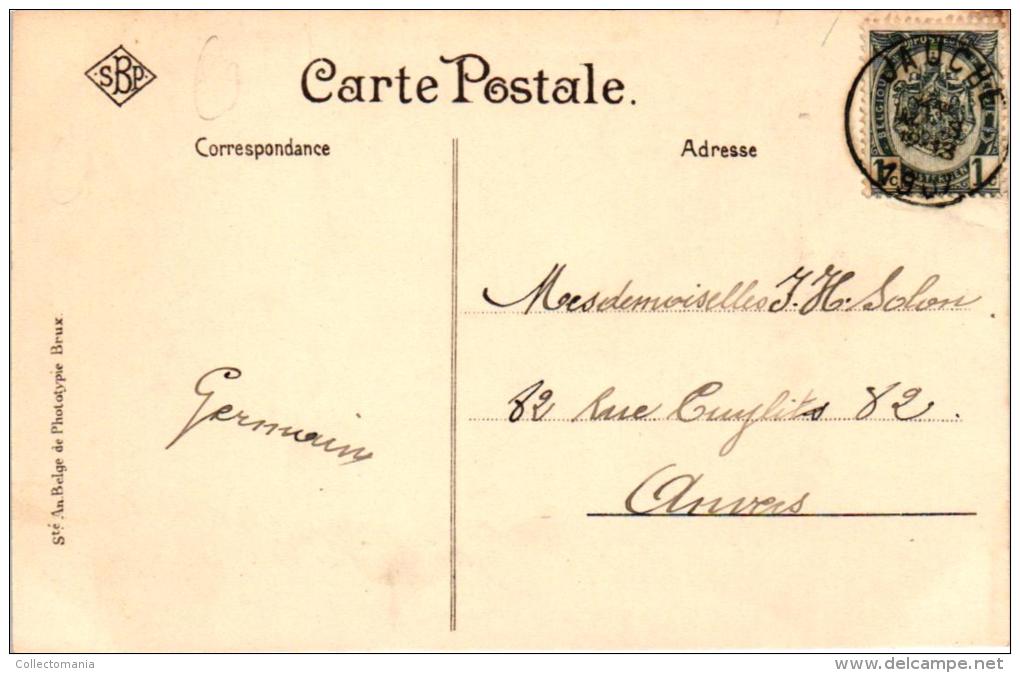 SBP
Carte Postale.
Correspondance
Adresse
JAUCHE
13
1907
BELGIQUE
POSTES
1c 1c
Mesdemoiselles J. H. Solon.
82 Rue Cuylits 82.
Anvers
Germain
Sté An. Belge de Phototypie Brux
Collectomania
www.delcampe.net